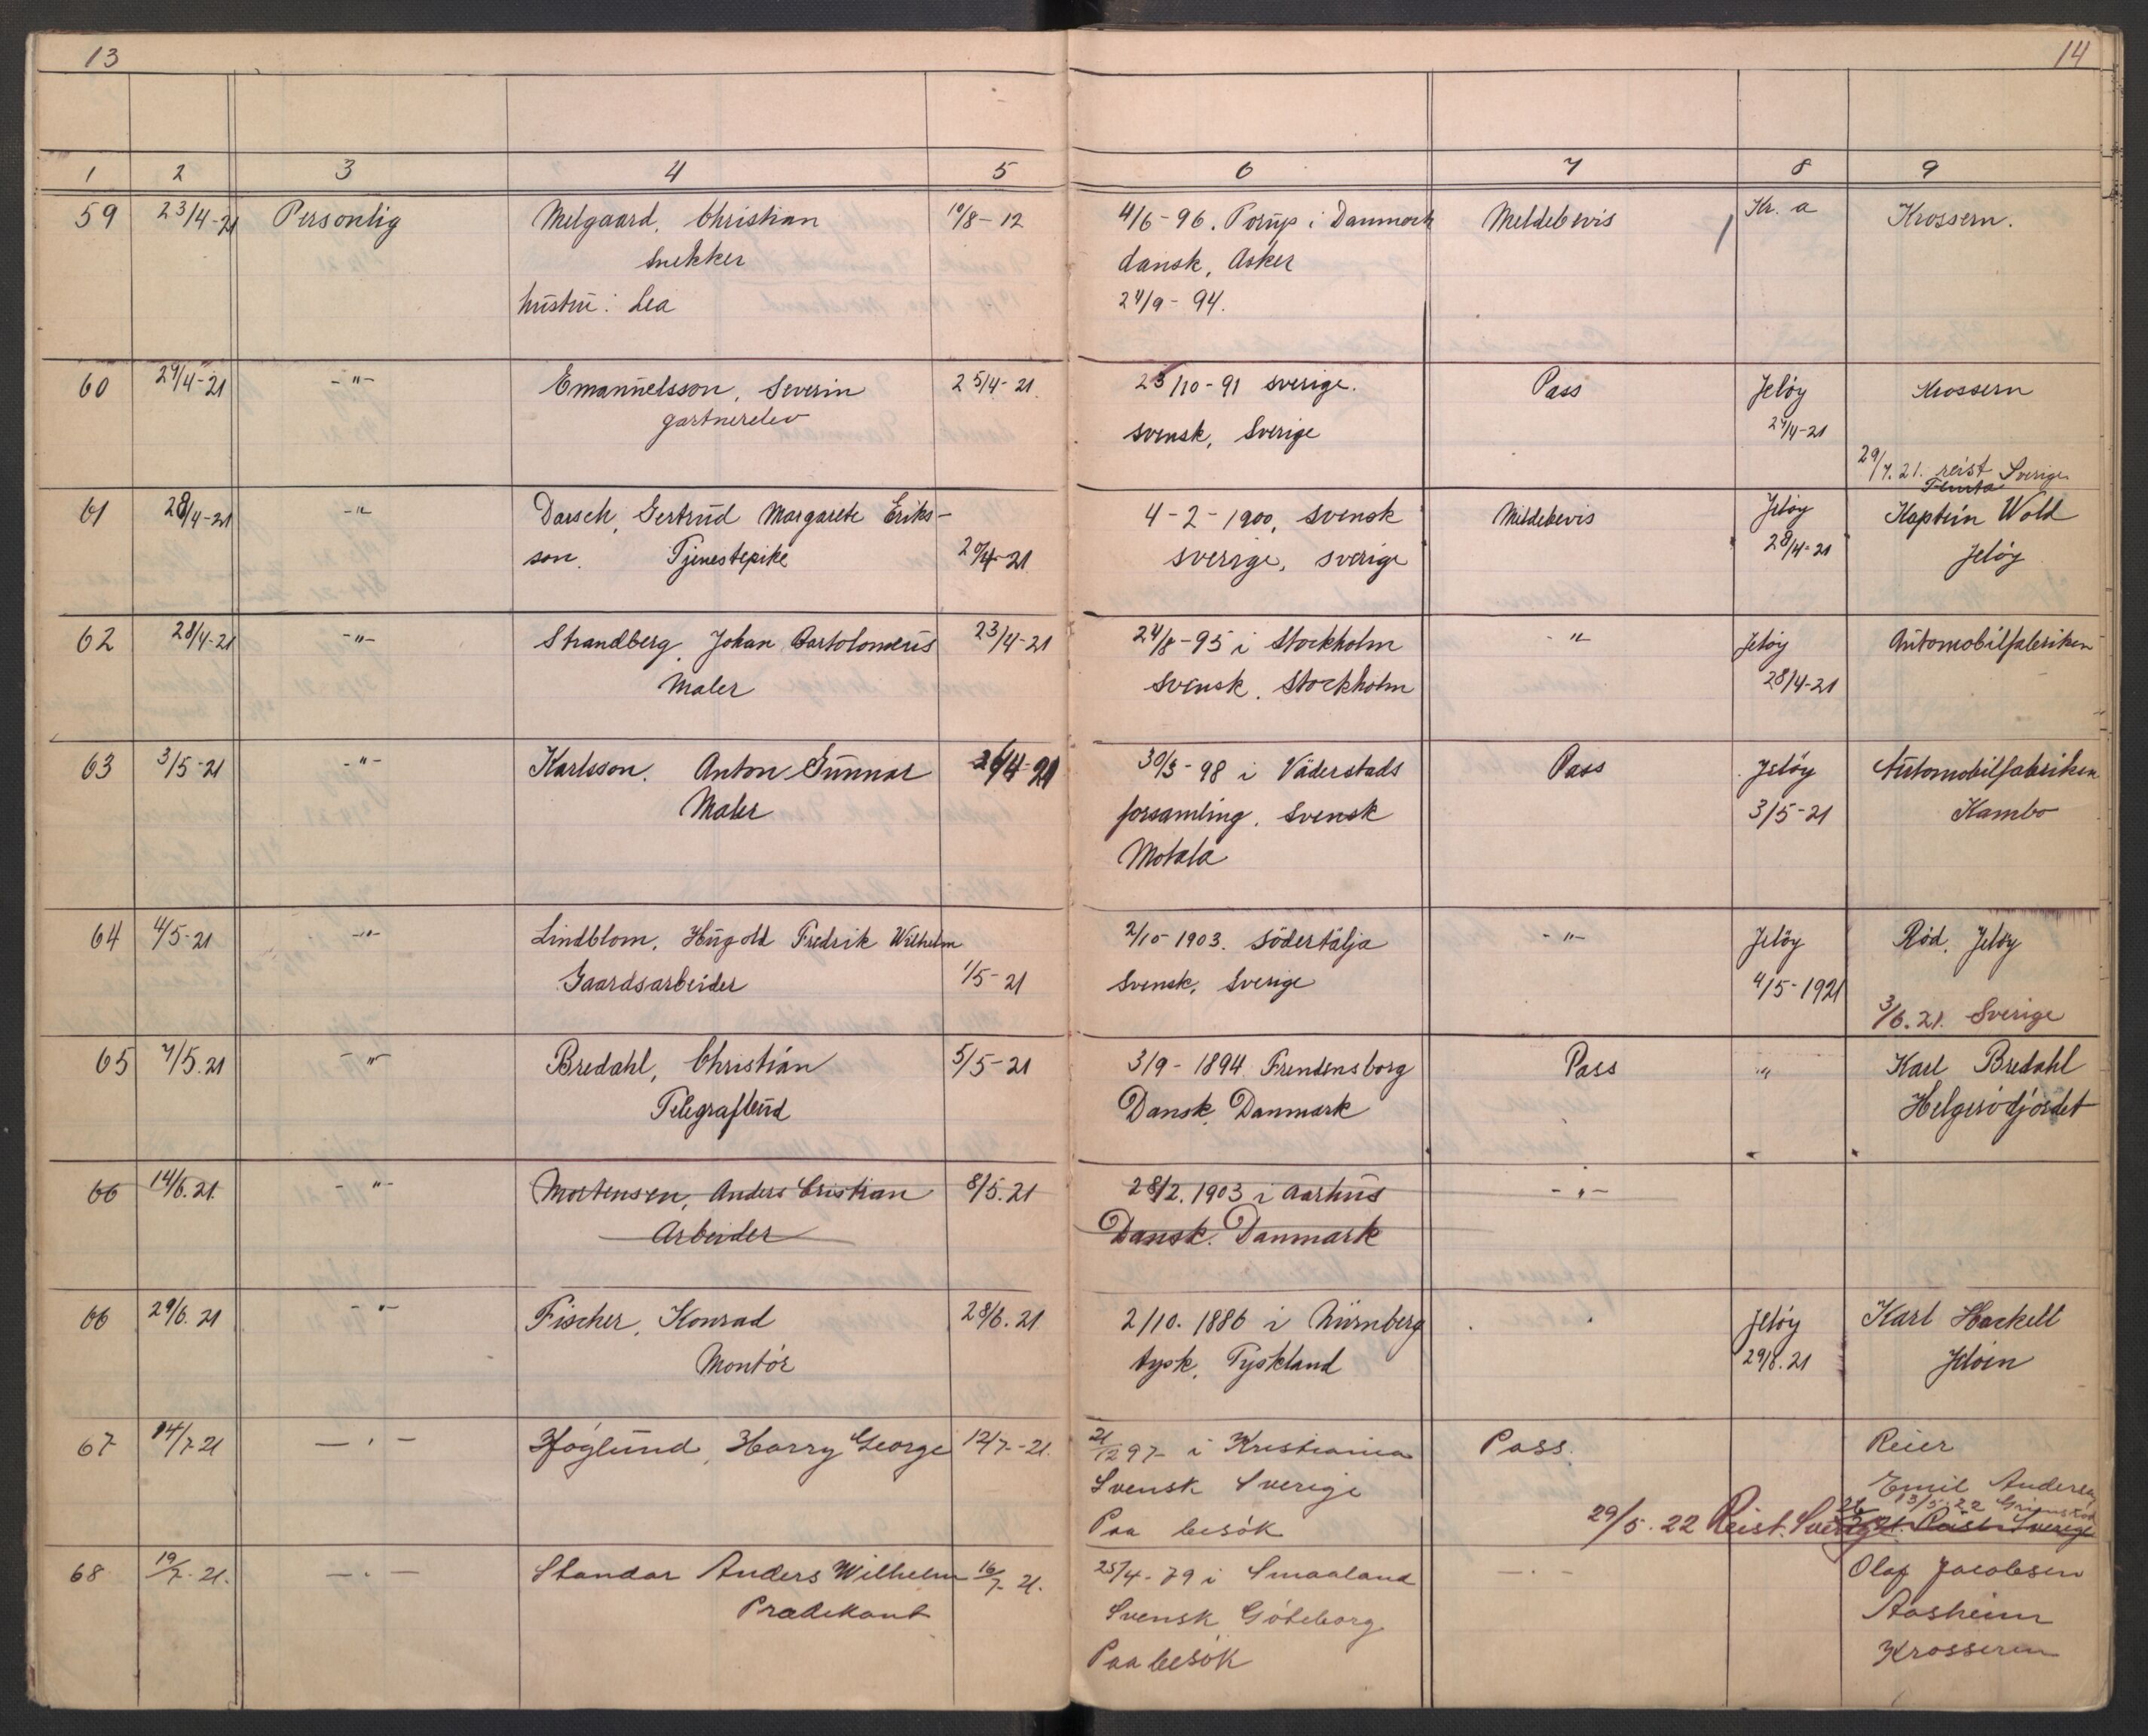 13
14
1 2 3 4 5 6 7 8 9
59 23/4-21 Personlig Melgaard, Christian 10/8-12 4/6-96. i Danmark Meldebevis Kr. a Krossern.
Snekker dansk, Asker
hustru: Lea 24/9-94.
60 29/4-21 -"- Emanuelsson, Severin 25/4-21. 23/10-91 sverige. Pass Jeløy Krossern
gartnerelev svensk, Sverige 29/4-21
29/7.21. reist Sverige
61 28/4-21 -"- Darsch, Gertrud Margarete Eriks- 4-2-1900, svensk Meldebevis Jeløy Kaptein Wold
son. Tjenestepike 20/4-21 sverige, sverige 28/4-21 Jeløy
62 28/4-21 -"- Strandberg, Johan Bartolomeus 23/4-21 24/8-95 i Stockholm -"- Jeløy Automobilfabriken
Maler Svensk. Stockholm 28/4-21
63 3/5-21 -"- Karlsson. Anton Gunnar 26/4-21 30/3-98 i Väderstads Pass Jeløy Automobilfabriken
Maler forsamling. Svensk 3/5-21 Kambo
Motala
64 4/5-21 -"- Lindblom, Hugold Fredrik Wilhelm 2/10-1903. Södertälja -"- Jeløy Rød, Jeløy
Gaardsarbeider 1/5-21 Svensk, Sverige 4/5-1921
3/6.21. Sverige
65 7/5.21 -"- Bredahl, Christian 5/5-21 3/9-1894 Frendensborg Pass "" Karl Bredahl
Telegrafbud Dansk, Danmark Helgerødjordet
66 14/6.21. -"- Mortensen, Anders Cristian 8/5.21 28/2.1903 i Aarhus -"-
Arbeider Dansk. Danmark
66 29/6.21 -"- Fischer, Konrad 28/6.21 2/10.1886 i Nürnberg " Jeløy Karl Hackell
Montør tysk, Tyskland 29/6.21 Jeløen
67 14/7-21 -"- Høglund, Harry George 12/7-21. 21/12 97 i Kristiania Pass. Reier
Svensk Sverige Emil Andersen
13/5-22
Paa besøk 29/5.22 Reist. Sverige Reist Sverige
68 19/7-21. -"- Standar Anders Wilhelm 16/7-21. 25/4-79 i Smaaland -"- Olaf Jacobsen
Predikant Svensk Göteborg Aasheim
Paa besøk Krosseren